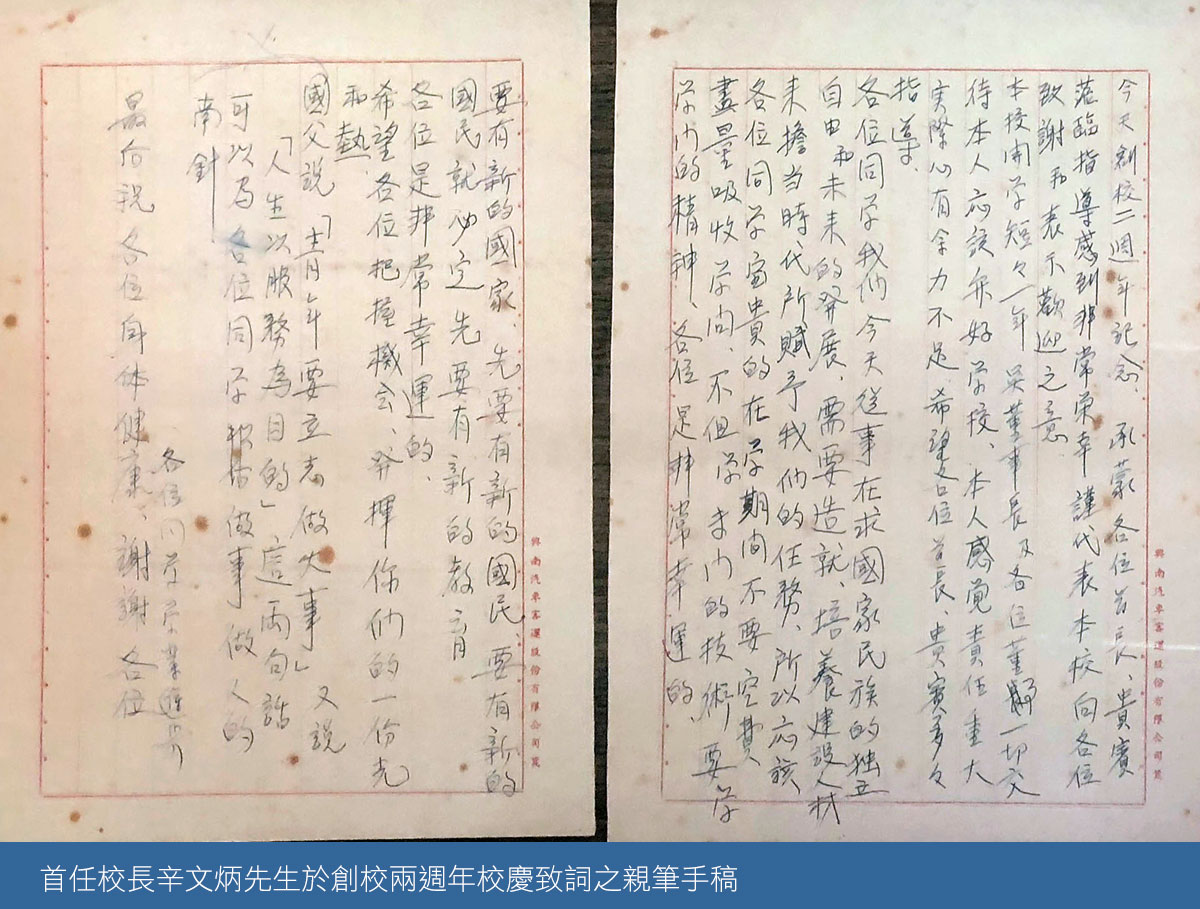 今天創校二週年記念、承蒙各位首長、貴賓
蒞臨指導感到非常榮幸 謹代表本校向各位
致謝和表示歡迎之意
本校開学短々一年 吴董事長及各位董 一切交
待本人応該弁好学校、本人感觉責任重大
実際心有余力不足 希望各位首長、貴賓多々
指導.
各位同学我们今天從事在求國家民族的独立
自由和未来的発展、需要造就、培養建設人材
来擔当時代所賦予我们的任務、所以応該
各位同学宝貴的在学期间不要空費
盡量吸收学问、不但学 内的技術、要学
学 的精神、各位是非常幸運的、
興南汽車客運股份有限公司箋
要有新的國家、先要有新的國民 要有新的
國民就必定先要有新的教育
各位是非常幸運的.
希望各位把握機会、発揮你们的一份光
和熱.
國父説「青年要立志做大事」又説
「人生以服務為目的」這两句話
可以為各位同学 做事做人的
南針
各位同学学業進步
最后祝各位身体健康、謝謝各位
興南汽車客運股份有限公司箋
首任校長辛文炳先生於創校兩週年校慶致詞之親筆手稿